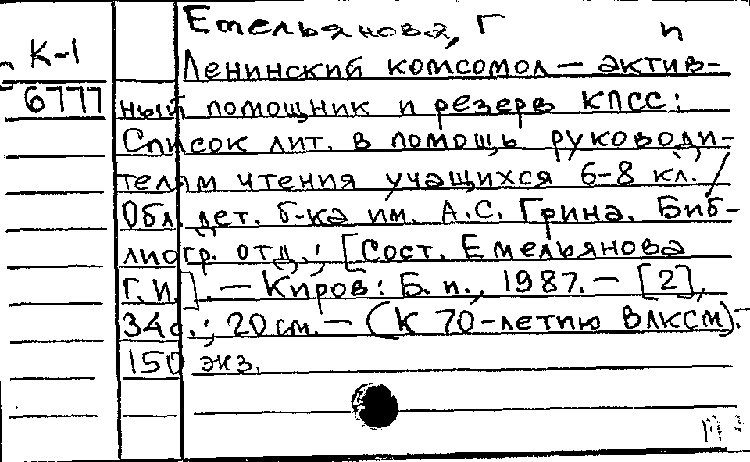 Емельянова, Г п
К-1
Ленинский комсомол — актив-
6777
ный помощник и резерв КПСС:
Список лит. в помощь руководи-
телям чтения учащихся 6-8 кл. /
Обл. дет. б-ка им. А.С. Грина. Биб-
лиогр. отд.; [Сост. Емельянова
Г.И.]. — Киров: Б. и., 1987. — [2],
34 с.; 20 см. — (К 70-летию ВЛКСМ). —
150 экз.